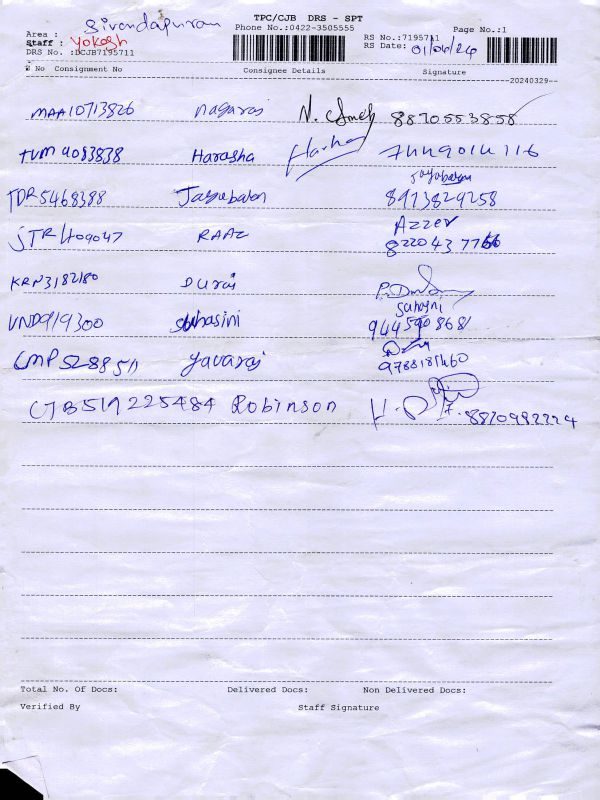 TPC/CJB DRS - SPT
Phone No.:0422-3505555
Page No.:1
Area : Sivandapuram
Staff : Yokesh
RS No.:7195711
RS Date: 01/04/24
DRS No. :DCJB7195711
S No Consignment No Consignee Details Signature
20240329
MAA10713826 Nagaraj 8870553858
TVM4083838 Harasha
Jayabalan
JDR5468388 Jayabalan 8973829258
Azzer
JTR4109047 RAAZ 8220437766
KRN3182180 Durai
Suhasini
VND919300 Suhasini 9445590868
CMP5288511 Yavaraj 9788181460
CJB519225484 Robinson 8870982224
Total No. Of Docs: Delivered Docs: Non Delivered Docs:
Verified By Staff Signature